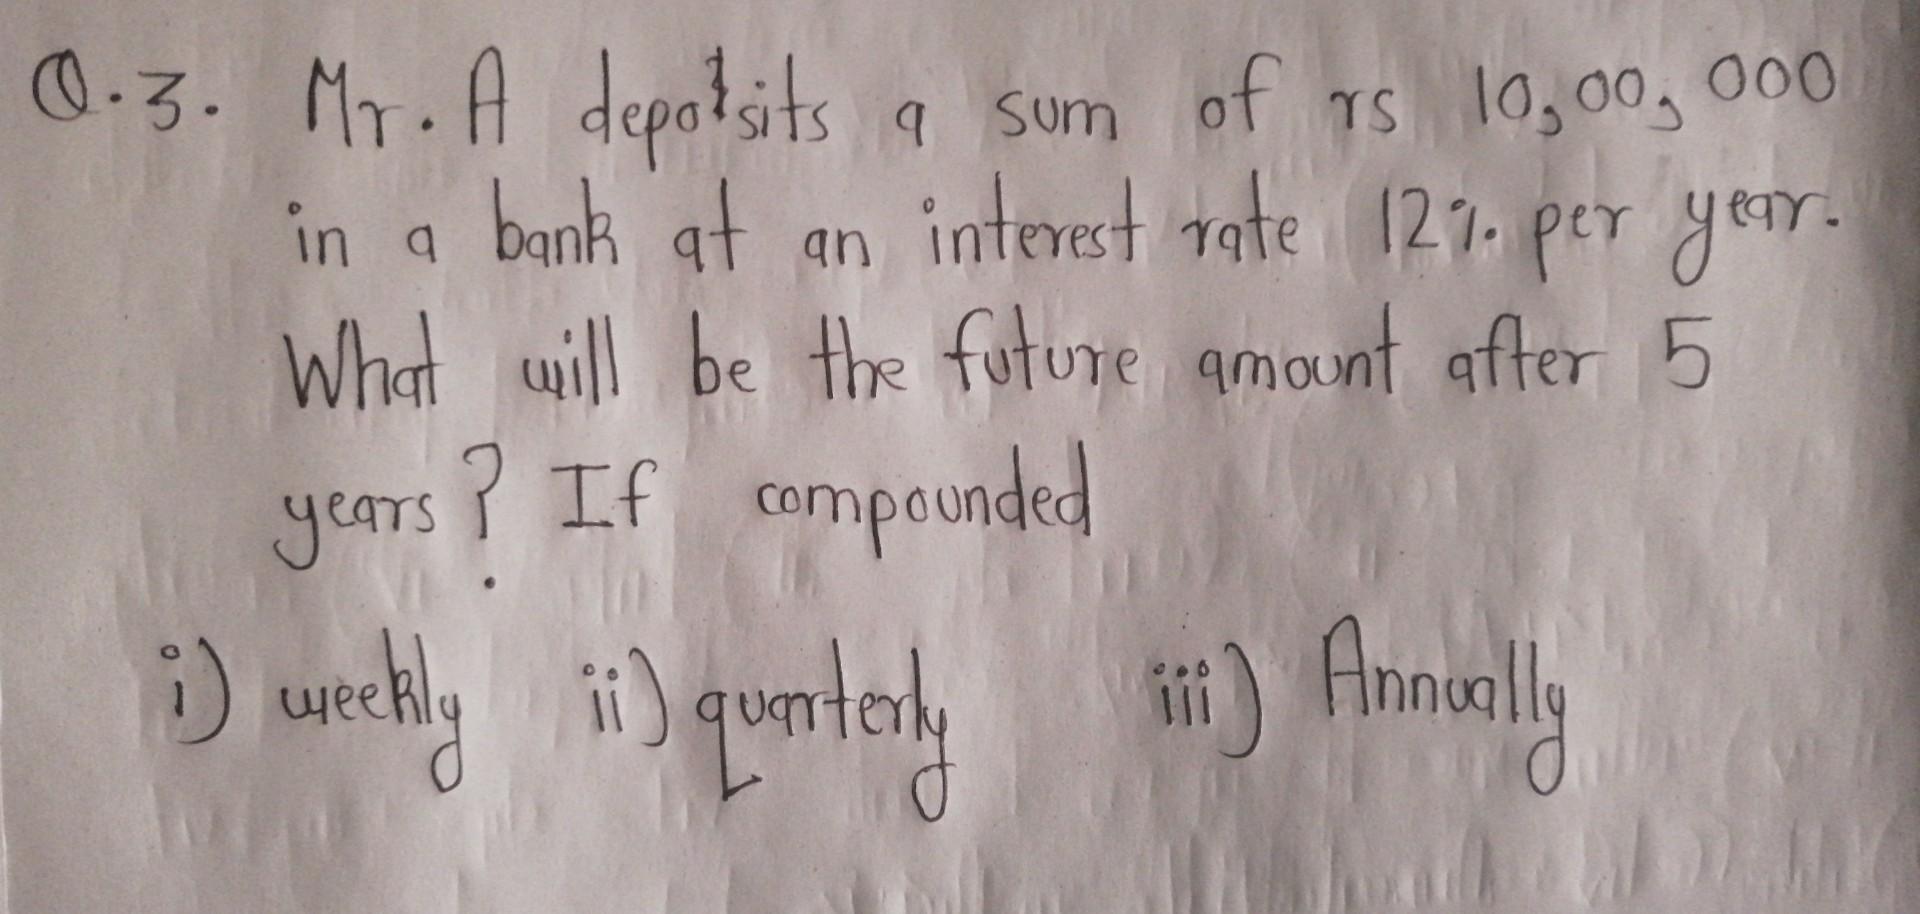 Q.3. Mr. A depotsits a sum of rs 10,00,000
in a bank at an interest rate 12% per year.
What will be the future amount after 5
years? If compounded
i) weekly ii) quarterly iii) Annually